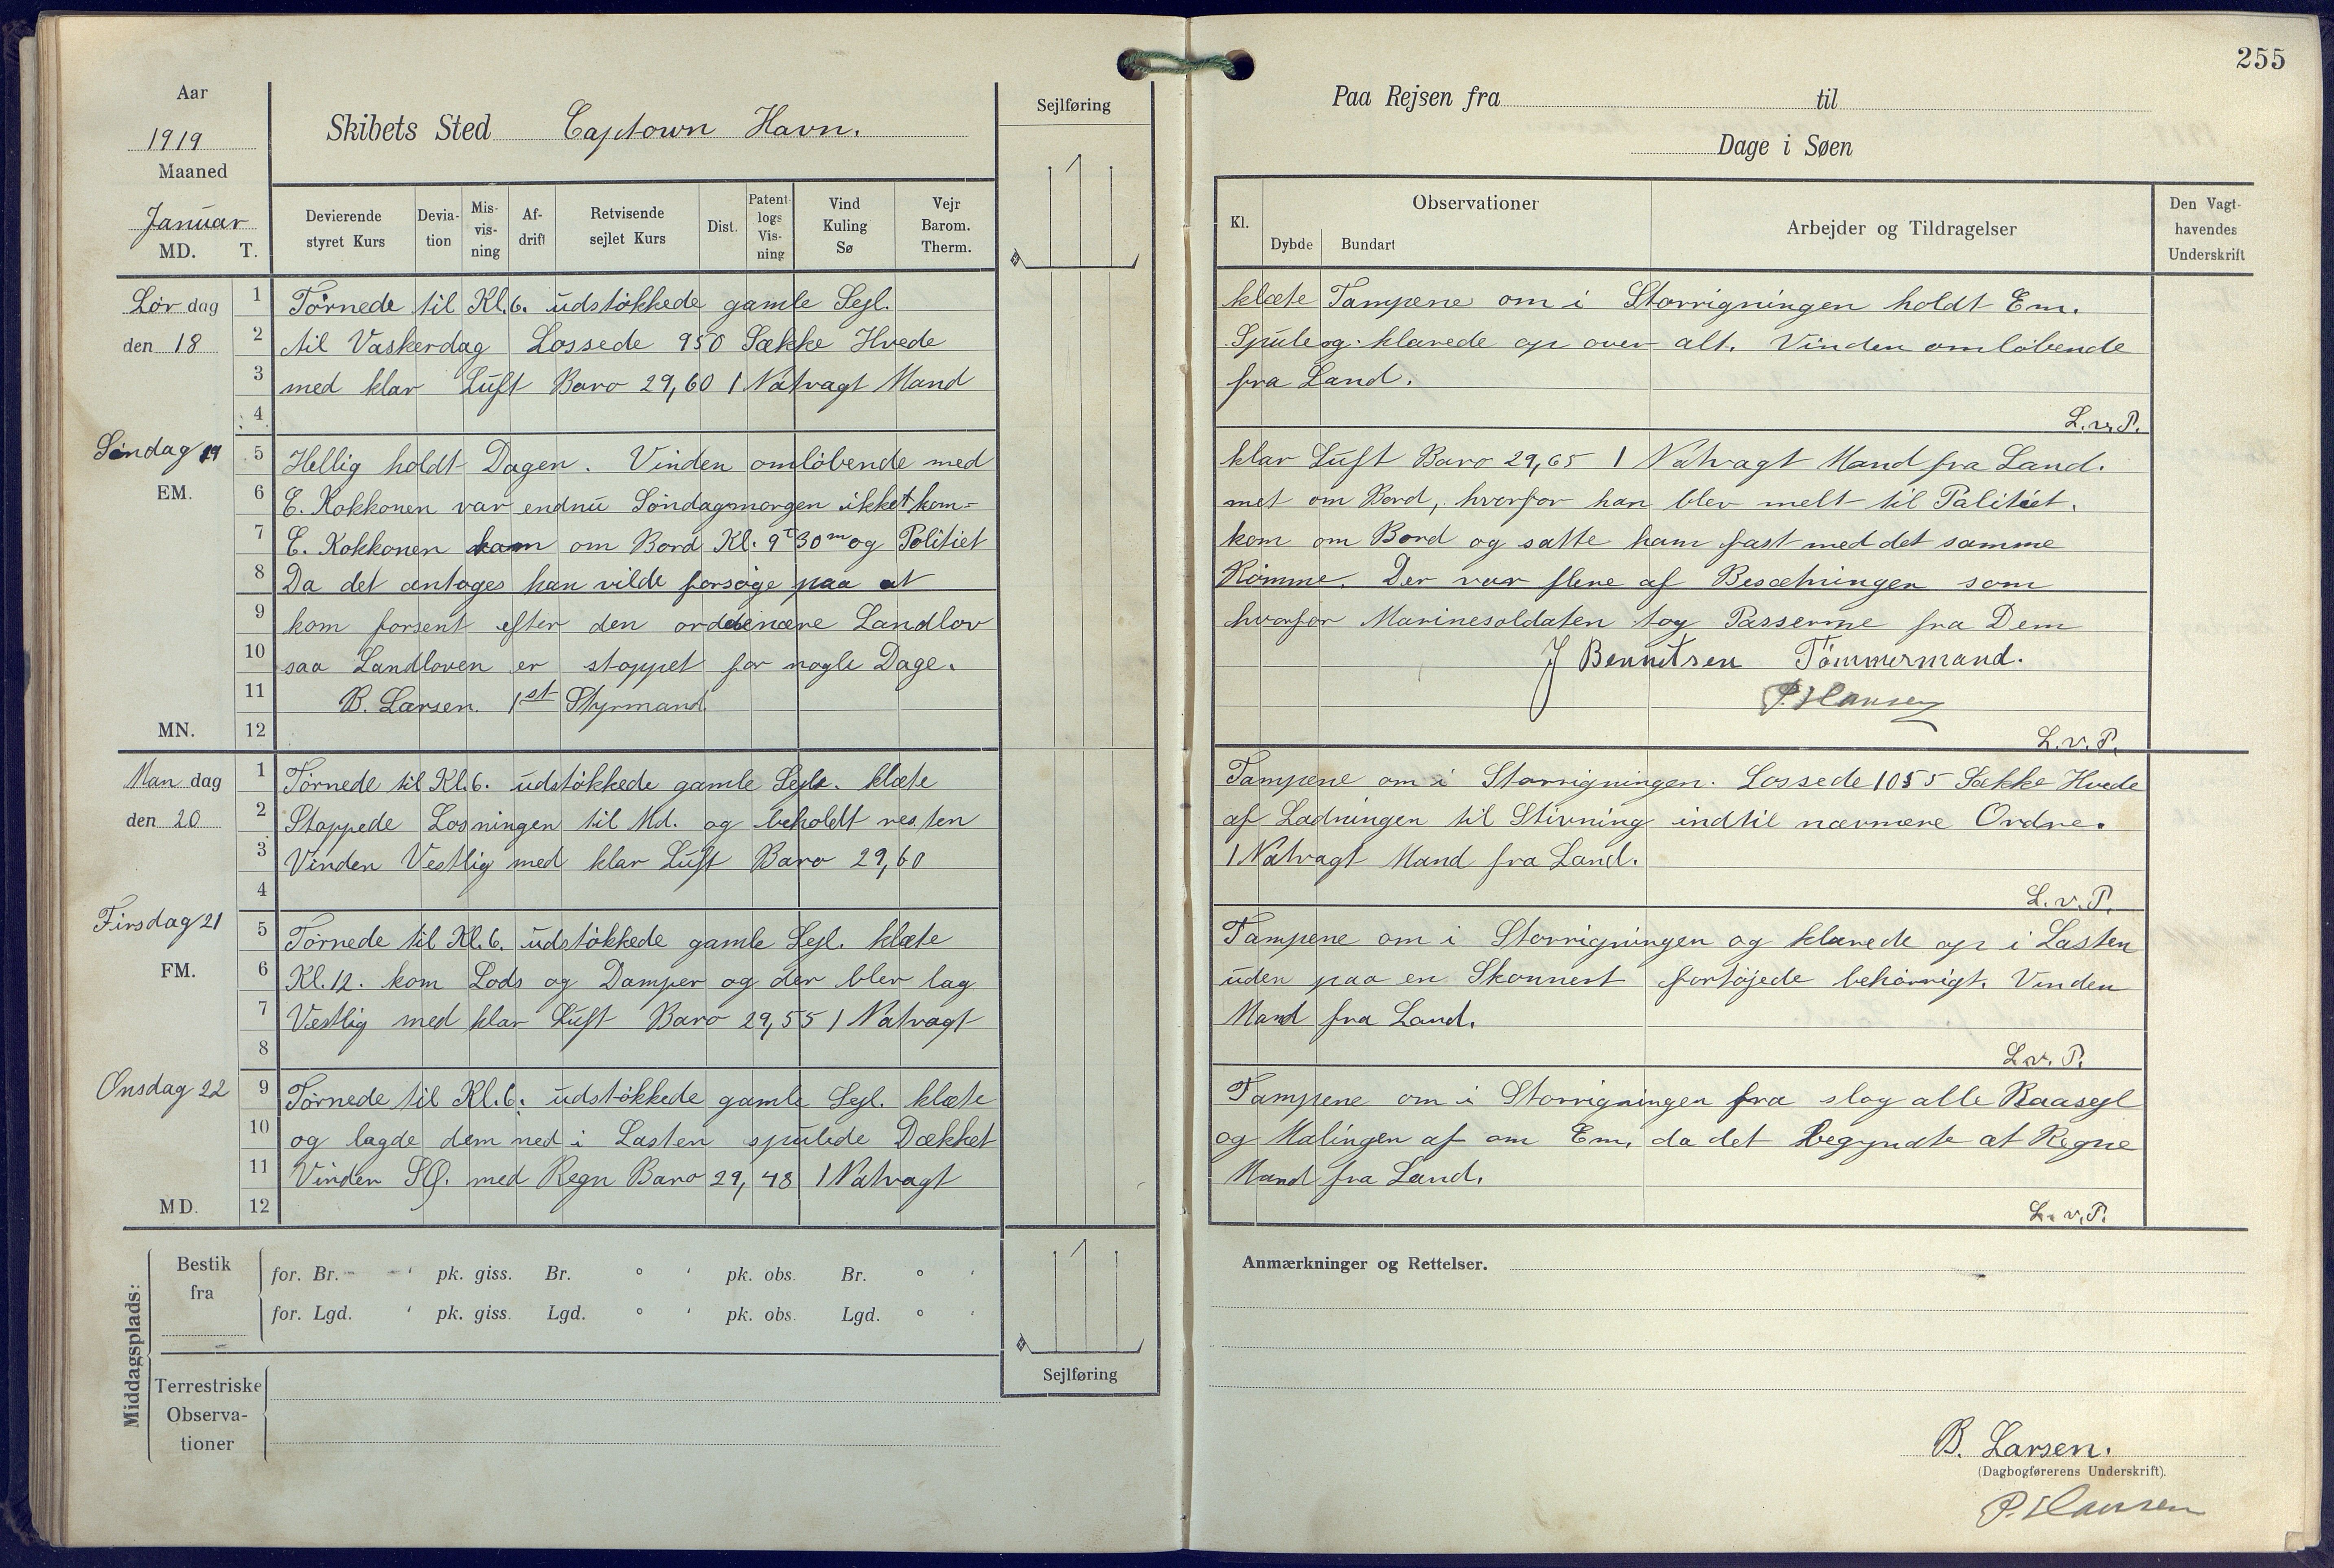 255
Aar
1919
Maaned
Januar
MD. T.
Skibets Sted Captown Havn.
Sejlføring
Paa Rejsen fra til
Dage i Søen
Devierende styret Kurs
Devia-tion
Mis-vis-ning
Af-drift
Retvisende sejlet Kurs
Dist.
Patent-logs Vis-ning
Vind Kuling Sø
Vejr Barom. Therm.
Kl.
Observationer
Dybde Bundart
Arbejder og Tildragelser
Den Vagt-havendes Underskrift
Lør dag
den 18
1 Tørnede til Kl. 6. udstøkkede gamle Sejl. klæte Tampene om i Storrigningen holdt Em.
2 til Vaskerdag Lossede 950 Sække Hvede Spule og klarede op over alt. Vinden omløbende
3 med klar Luft Baro 29,60 1 Natvagt Mand fra Land.
4 L.v.P.
Søndag 19
EM.
5 Hellig holdt Dagen. Vinden omløbende med klar Luft Baro 29,65 1 Natvagt Mand fra Land.
6 E. Kokkonen var endnu Søndagmorgen ikket kom= met om Bord, hvorfor han blev melt til Palitiet.
7 E. Kokkonen kom om Bord Kl. 9 T 30 m og Politiet kom om Bord og satte ham fast med det samme
8 Da det antages han vilde forsøge paa at Rømme. Der var flere af Besætningen som
9 kom forsent efter den orddenære Landlov hvorfor Marinesoldaten tog Passerme fra Dem
10 saa Landloven er stoppet for nogle Dage. J Benntsen Tømmermand.
11 B. Larsen. 1st Styrmand. P. Hansen
MN. 12 L.v.P.
Man dag
den 20
1 Tørnede til Kl. 6. udstøkkede gamle Sejle. klæte Tampene om i Storrigningen. Lossede 1055 Sække Hvede
2 Stoppede Losningen til Md. og beholdt resten af Ladningen til Stivning indtil nærmere Ordre.
3 Vinden Vestlig med klar Luft Baro 29,60 1 Natvagt Mand fra Land.
4 L.v.P.
Tirsdag 21
FM.
5 Tørnede til Kl. 6. udstøkkede gamle Sejl. klæte Tampene om i Storrigningen og klarede op i Lasten
6 Kl. 12. kom Lods og Damper og der blev lag uden paa en Skonnert fortøjede behørrigt. Vinden
7 Vestlig med klar Luft Baro 29,55 1 Natvagt Mand fra Land.
8 L.v.P.
Onsdag 22
9 Tørnede til Kl. 6. udstøkkede gamle Sejl. klæte Tampene om i Storrigningen fra slog alle Raasejl
10 og lagde dem ned i Lasten spulede Dækket og Malingen af om Em, da det begyndte at Regne
11 Vinden SØ. med Regn Baro 29,48 1 Natvagt Mand fra Land.
MD. 12 L.v.P.
Middagsplads:
Bestik fra
for. Br. ' pk. giss. Br. ° ' pk. obs. Br. ° '
for. Lgd. ' pk. giss. Lgd. ° ' pk. obs. Lgd. ° '
Terrestriske Observa-tioner
Sejlføring
Anmærkninger og Rettelser.
B. Larsen.
(Dagbogførerens Underskrift).
P. Hansen